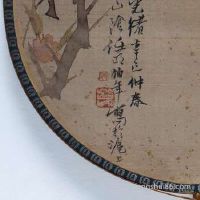 光緒辛巳仲春
山陰任頤伯年
寫於滬上